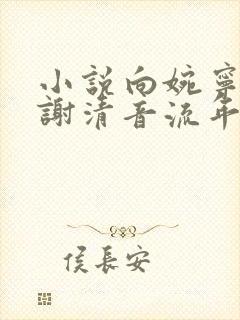 小說向婉寧
謝清音流年
侯長安